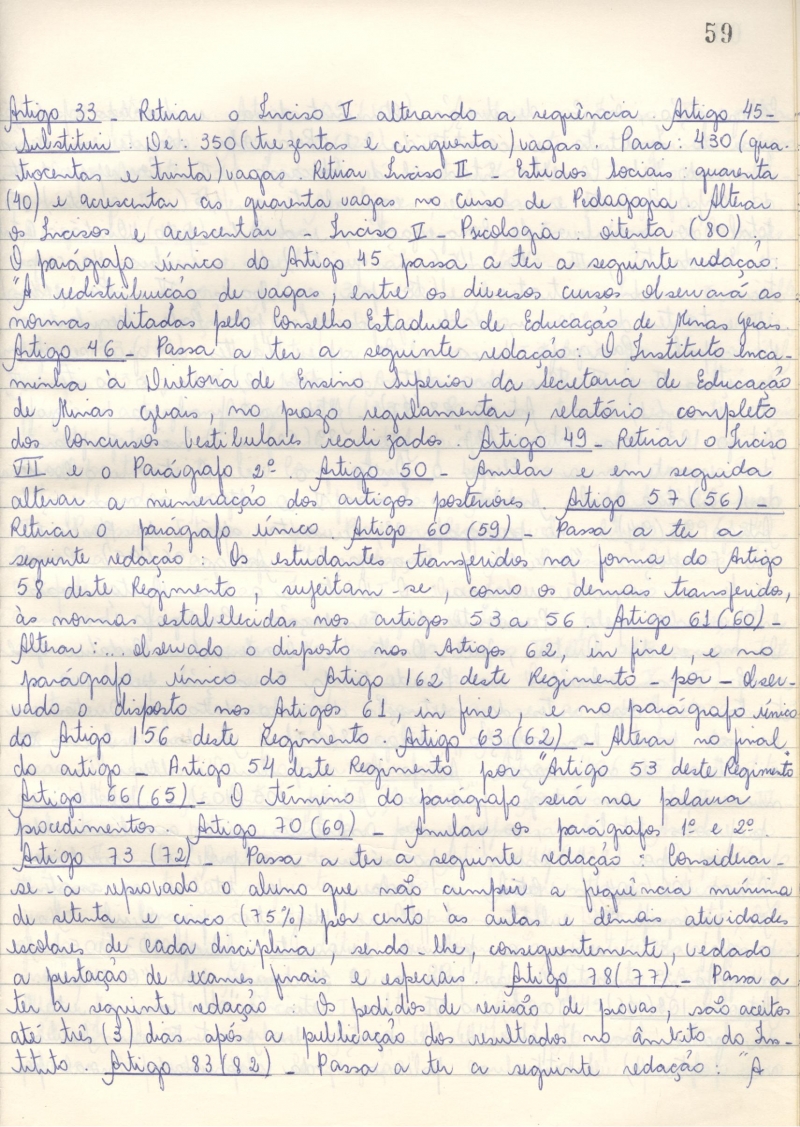 59
Artigo 33 - Retirar o Inciso V alterando a sequência. Artigo 45 -
Substituir. De: 350 (trezentas e cinquenta) vagas. Para: 430 (qua-
trocentas e trinta) vagas. Retirar Inciso II - Estudos Sociais: quarenta
(40) e acrescentar as quarenta vagas no curso de Pedagogia. Alterar
os Incisos e acrescentar - Inciso V - Psicologia. oitenta (80).
O parágrafo único do Artigo 45 passa a ter a seguinte redação:
"A redistribuição de vagas, entre os diversos cursos observará as
normas ditadas pelo Conselho Estadual de Educação de Minas Gerais.
Artigo 46 - Passa a ter a seguinte redação: O Instituto enca-
minha à Diretoria de Ensino Superior da Secretaria de Educação
de Minas Gerais, no prazo regulamentar, relatório completo
dos Concursos Vestibulares realizados. Artigo 49 - Retirar o Inciso
VII e o Parágrafo 2º. Artigo 50 - Anular e em seguida
alterar a numeração dos artigos posteriores. Artigo 57 (56) -
Retirar o parágrafo único. Artigo 60 (59) - Passa a ter a
seguinte redação: Os estudantes transferidos na forma do Artigo
58 deste Regimento, sujeitam-se, como os demais transferidos,
às normas estabelecidas nos artigos 53 a 56. Artigo 61 (60) -
Alterar: ... observado o disposto nos Artigos 62, in fine, e no
parágrafo único do Artigo 162 deste Regimento - por - obser-
vado o disposto nos Artigos 61, in fine, e no parágrafo único
do Artigo 156 deste Regimento. Artigo 63 (62) - Alterar no final
do artigo - Artigo 54 deste Regimento por "Artigo 53 deste Regimento"
Artigo 66 (65) - O término do parágrafo será na palavra
procedimentos. Artigo 70 (69) - Anular os parágrafos 1º e 2º.
Artigo 73 (72) - Passa a ter a seguinte redação: Considerar-
se-à reprovado o aluno que não cumprir a frequência mínima
de setenta e cinco (75%) por cento às aulas e demais atividades
escolares de cada disciplina, sendo-lhe, consequentemente, vedado
a prestação de exames finais e especiais. Artigo 78 (77) - Passa a
ter a seguinte redação: Os pedidos de revisão de provas, são aceitos
até três (3) dias após a publicação dos resultados no âmbito do Ins-
tituto. Artigo 83 (82) - Passa a ter a seguinte redação: "A